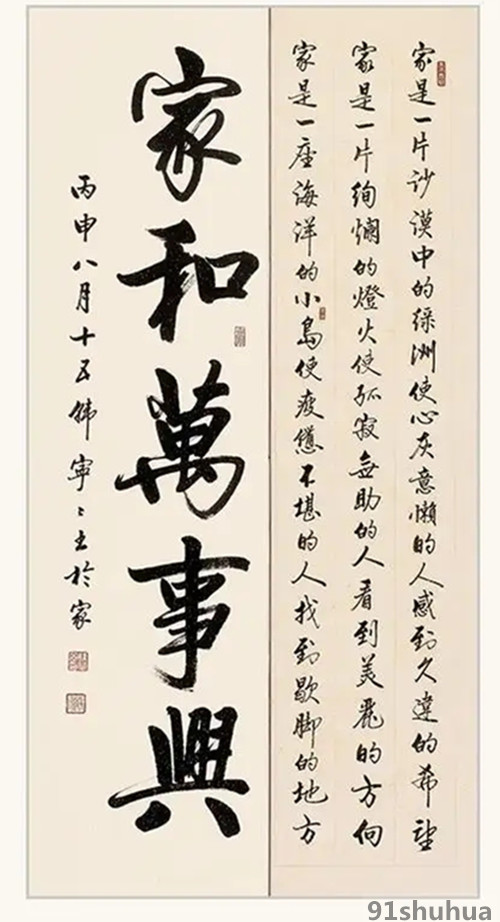 家是一片沙漠中的绿洲使心灰意懶的人感到久違的希望
家是一片绚爛的燈火使孤寂無助的人看到美麗的方向
家是一座海洋的小島使疲憊不堪的人找到歇脚的地方
家和萬事興
丙申八月十五 寧 於家
91shuhua